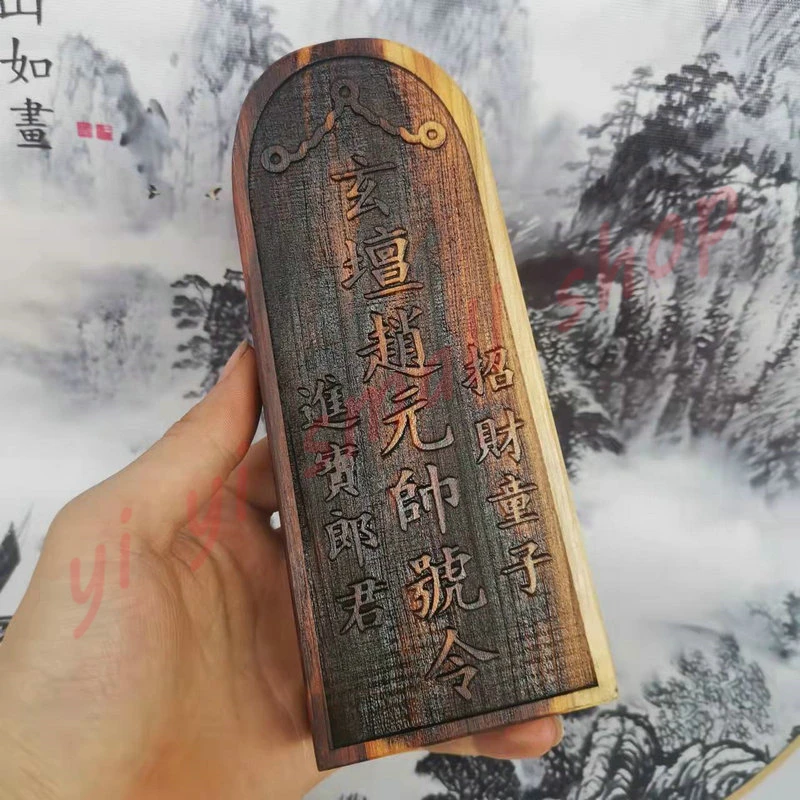 玄壇趙元帥號令
招財童子
進寳郎君
山如畫
yi yi small shop